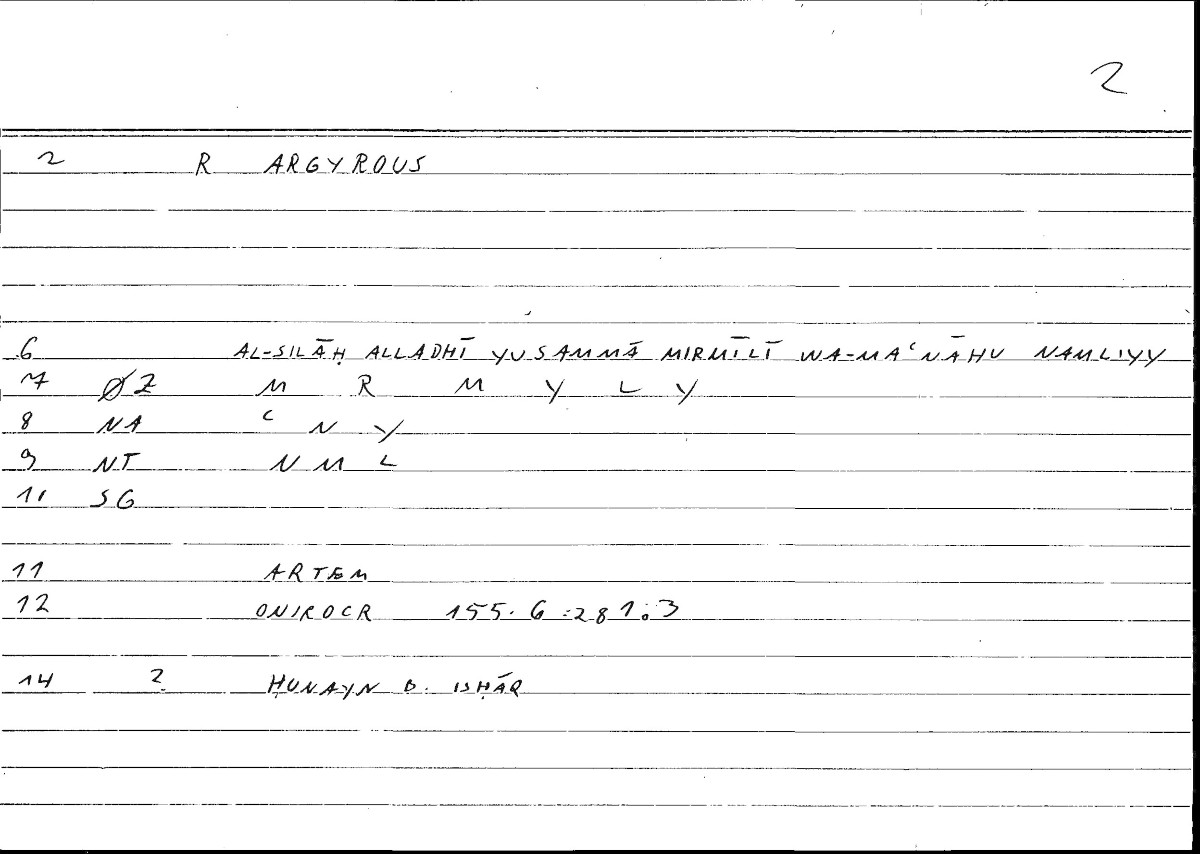 2
2 R ARGYROUS
6 AL-SILĀḤ ALLADHĪ YUSAMMĀ MIRMĪLĪ WA-MAʿNĀHU NAMLIYY
7 ØZ M R M Y L Y
8 NA ʿ N Y
9 NT N M L
10 SG
11 ARTEM
12 ONIROCR 155.6:281.3
14 2 ḤUNAYN B. ISḤĀQ